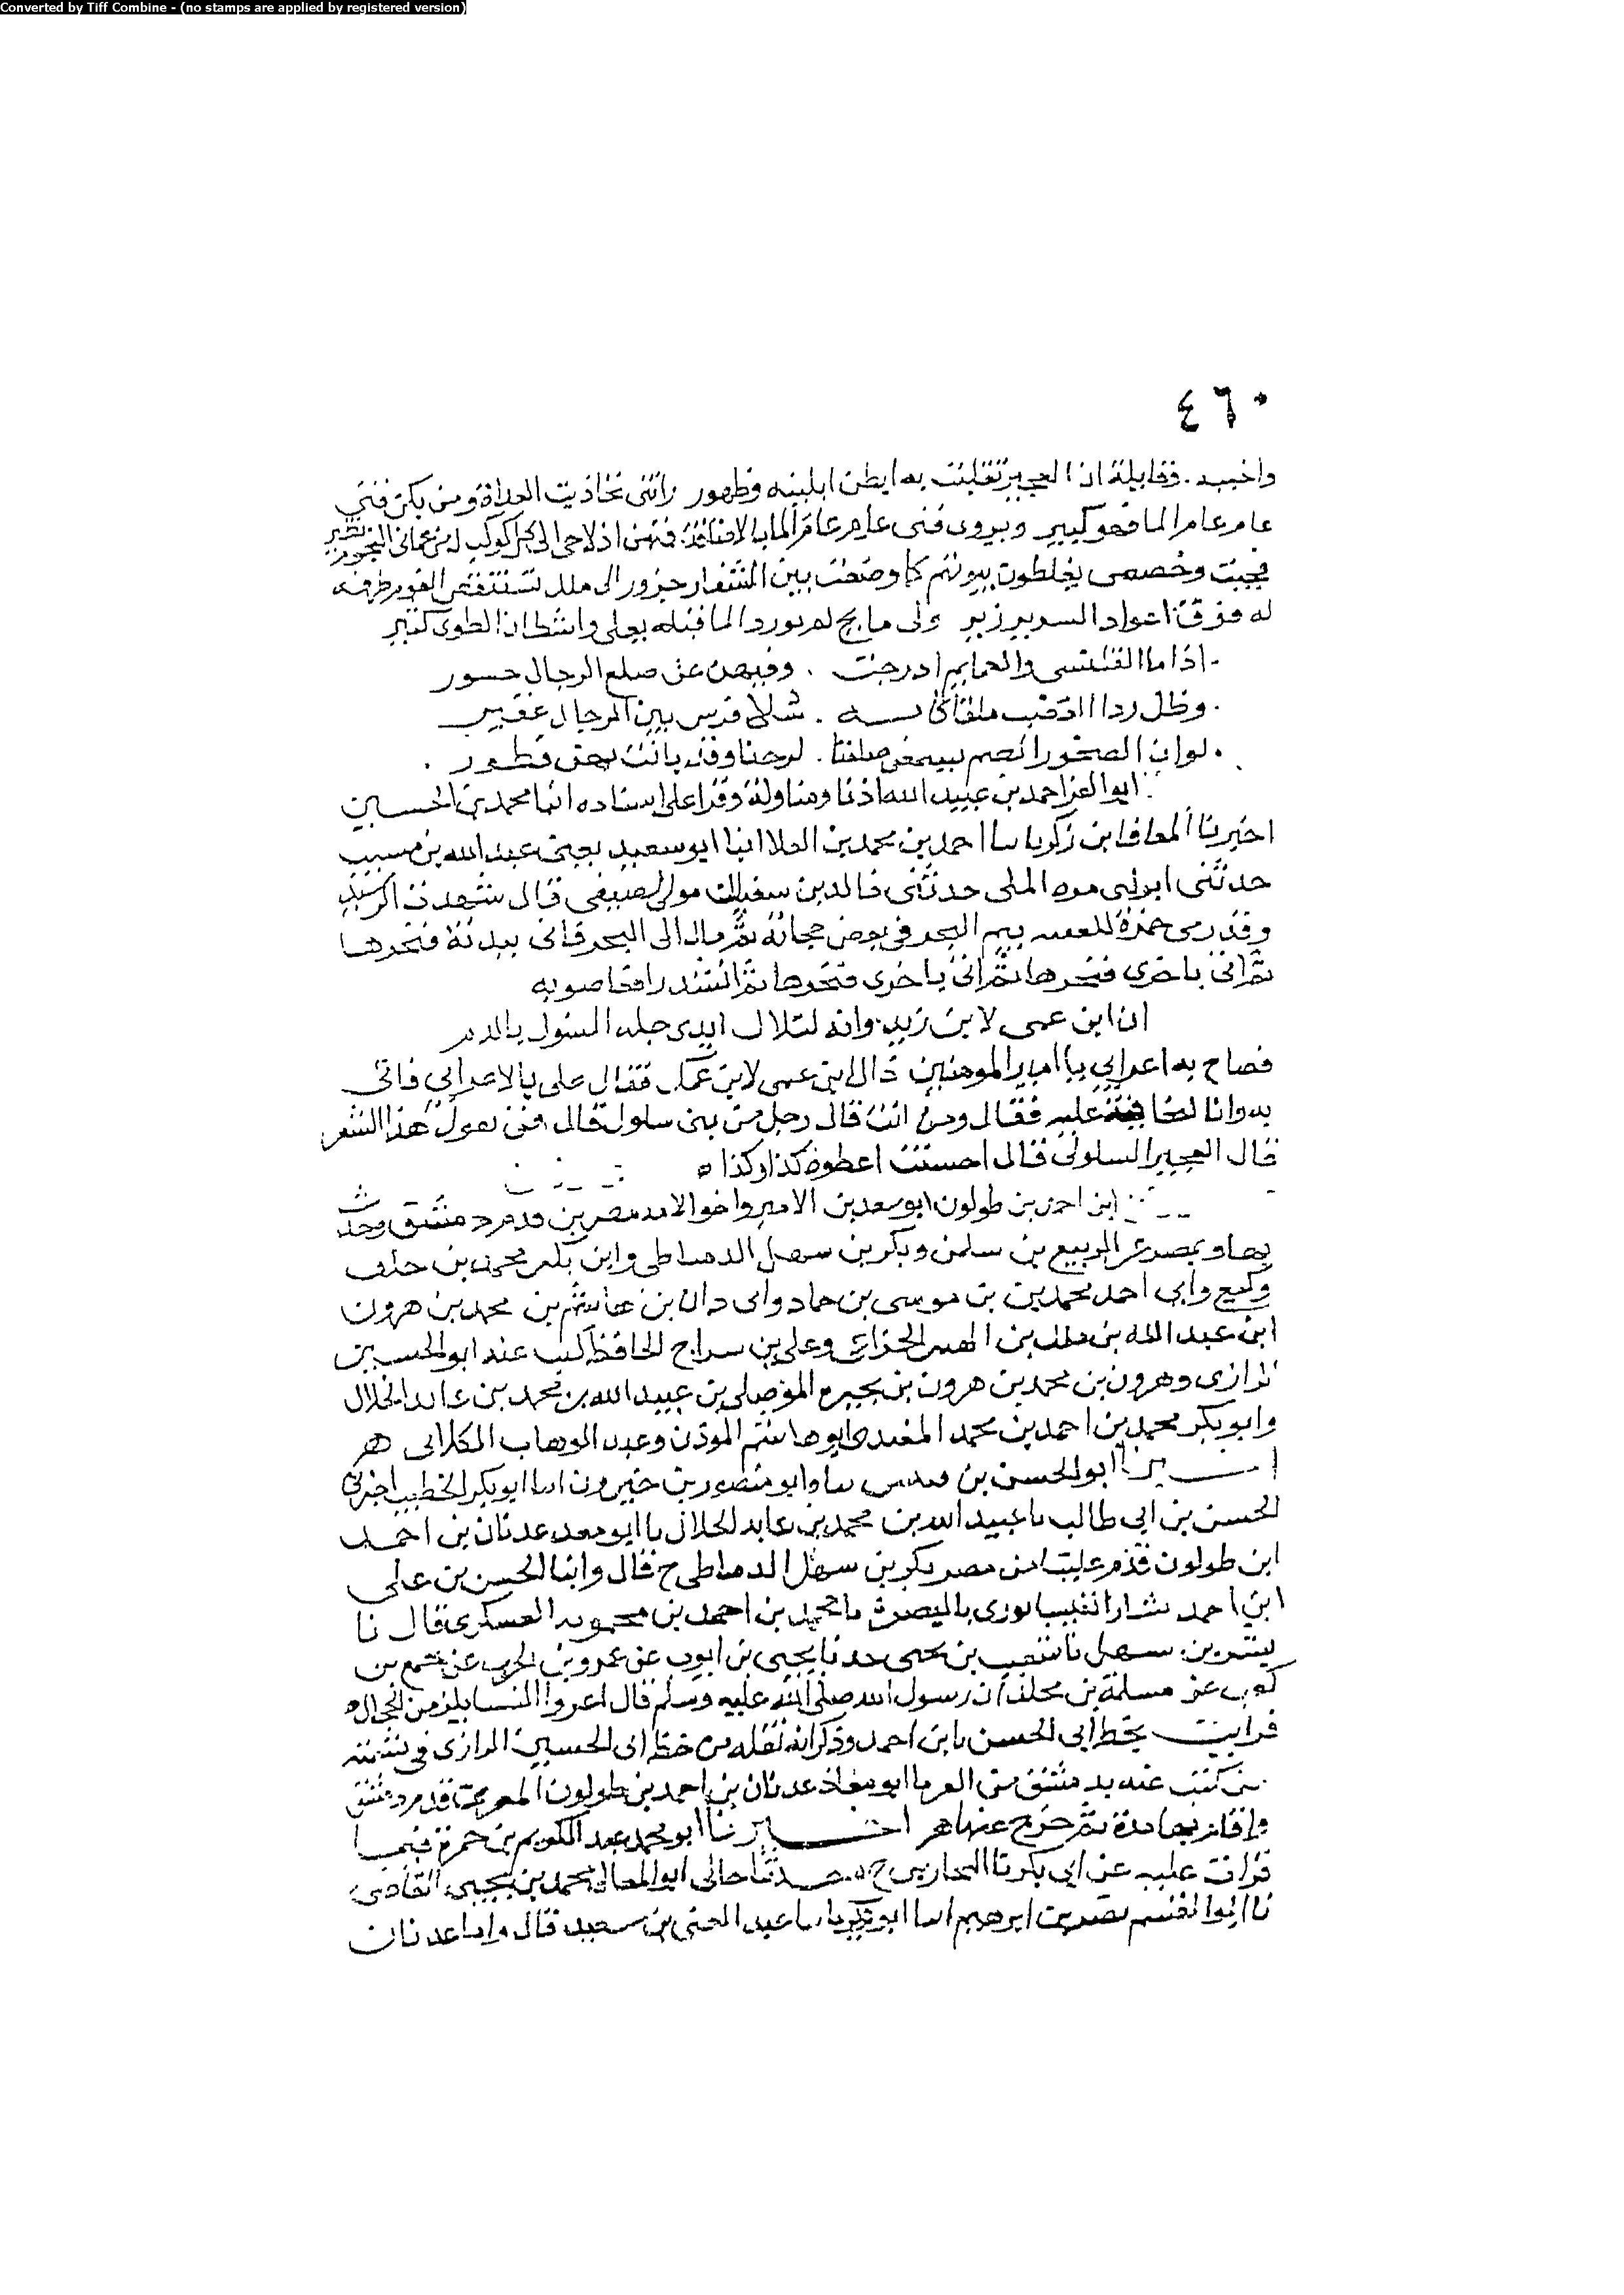 Converted by Tiff Combine - (no stamps are applied by registered version)
٤٦٠
وقايلة ان العجير تقلبت به ابطن ابلينه وظهور راتنى تخاذيت الغداة ومن يكن فتى
عام عام الما فهو كبير
فجيت وخصمى يغلطون بيوتهم كما وضعت بين الشفار جزور الى ملك تستنفض القوم طرفه
له فوق اعواد السرير زير ولى مايح لم يورد الما قبله يعلى واشطان الطوى كثير
اذا ما القلنسى والعمايم ادرجت . وفيهن عن صلع الرجال حسور
وظل ردا العصب ملقا كانه . شلا فرس بين الرجال عقير
لو ان الصخور الصم يسمعن صلقنا . لرحنا وقد بانت بهن فطور .
ابو العز احمد بن عبيد الله اذنا ومناولة وقرا على اسناده انا محمد بن الحسين
اخبرنا المعافا بن زكريا احمد بن محمد بن العلا انبا ابو سعيد يعنى عبد الله بن شبيب
حدثنى حدثنى خالد بن سفيان مولى قال شهدت الرشيد
وقد رمى جمرة العقبة يوم النحر فى بعض حجاته ثم مال الى النحر فاتى ببدنة فنحرها
ثم اتى باخرى فنحرها ثم اتى باخرى فنحرها ثم انشد رافعا صوته
ان ابن عمى لابن زيد وانه لبلال ايدى جله الشول بالدم
فصاح به اعرابى يا امير المومنين ذاك ابن عمى لابن عمك فقال على بالاعرابى فاتى
به وانا لخايفة عليه فقال ومن انت قال رجل من بنى سلول قال فمن يقول هذا الشعر
قال العجير السلولى قال احسنت اعطوه كذا وكذا ه
ابن احمد بن طولون ابو معد بن الامير واخو الامرا بمصر قدم دمشق وحدث
بها وبمصر عن الربيع بن سلمن وبكر بن سهل الدمياطى وابن بكر محمد بن خلف
وكيع وابى احمد محمد بن موسى بن حماد هاشم بن محمد بن هرون
ابن عبد الله بن ملك بن الهيثم الخزاعى وعلى بن سراج الحافظ كتب عنه ابو الحسين
الرازى وهرون بن محمد بن هرون الموصلى بن عبيد الله بن محمد بن عابد الخلال
وابو بكر محمد بن احمد بن محمد المفيد وابو هاشم الموذن وعبد الوهاب الكلابى هر
اخبرنا ابو الحسن بن قبيس نا وابو منصور بن خيرون انا ابو بكر الخطيب اخبرنى
الحسن بن ابى طالب نا عبيد الله بن محمد بن عابد الخلال نا ابو معد عدنان بن احمد
ابن طولون قدم علينا من مصر بكر بن سهل الدمياطى ح قال وانبا الحسن بن على
ابن احمد بشار النيسابورى بالبصرة نا محمد بن احمد بن محمويه العسكرى قال نا
بن سهل نا شعيب بن يحيى حدثنا يحيى بن ايوب عن عمرو بن الحرث عن مجمع بن
كعب عن مسلمة بن مخلد ان رسول الله صلى الله عليه وسلم قال اعروا النسا يلزمن الحجال ه
قرات بخط ابى الحسن نا بن احمد وذكر انه نقله من خط ابى الحسين الرازى فى تسمية
من كتب عنه بدمشق من الغربا ابو معد عدنان بن احمد بن طولون المصرى قدم دمشق
واقام بها مدة ثم خرج عنها هر اخبرنا ابو محمد عبد الكريم بن حمزة فيما
قرات عليه عن ابى زكريا البخارى ح ه حدثنا خالى ابو المعالى محمد بن يحيى القاضى
نا ابو الفتح نصر بن ابرهيم انا ابو زكريا نا عبد الغنى بن سعيد قال واما عدنان